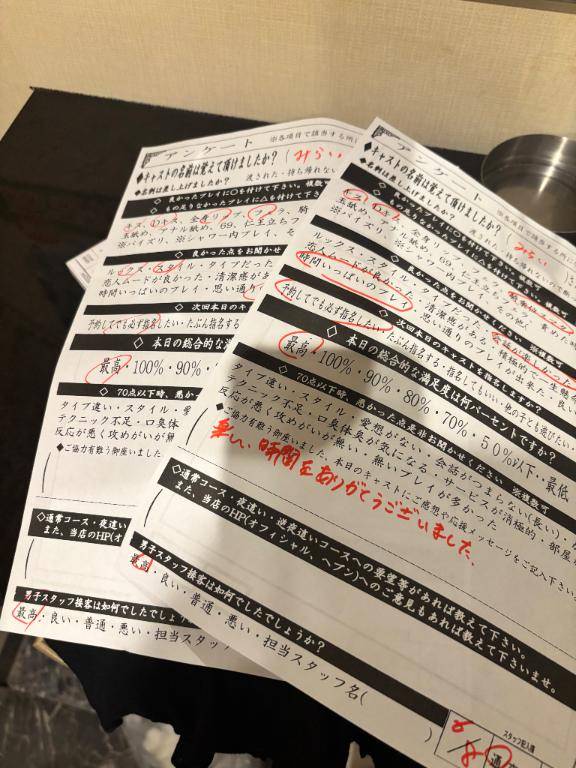 アンケート
◆キャストの名前は覚えて頂けましたか?( みらい
◆名刺は差し上げましたか? 渡された・持ち帰れない
◇良かったプレイに○を付けて下さい。複数可
◇もの足りなかったプレイに△を付けて下さい。
キス、Dキス、全身リップ、フェラ、騎
玉舐め、アナル舐め、69、仁王立ちフ
※パイズリ、※シャワー内プレイ、そ
◇良かった点をお聞かせ
ルックス・スタイル・タイプだった
恋人ムードが良かった・清潔感があ
時間いっぱいのプレイ・思い通り
◇次回本日のキ
予約してでも必ず指名したい・たぶん指名する
◆本日の総合的な満足
最高・100%・90%
◇70点以下時、悪かっ
タイプ違い・スタイル・愛
テクニック不足・口臭体
反応が悪く攻めがいが無
◆ご協力有難う御座いました
◇通常コース・夜違い
また、当店のHP(オフ
男子スタッフ接客は如何でしたでしょ
最高・良い・普通・悪い・担当スタッフ
アンケート
※各項目で該当する所に
◆キャストの名前は覚えて頂けましたか?( みらい
◆名刺は差し上げましたか? 渡された・持ち帰れない
◇良かったプレイに○を付けて下さい。複数可
◇もの足りなかったプレイに△を付けて下さい。
キス、Dキス、全身リ
玉舐め、アナル舐め
※パイズリ、※シャワー内プレイ
◇良かった点をお聞かせください ※複数可
ルックス・スタイル・タイプだった・会話が楽しかった
恋人ムードが良かった・清潔感がある・積極的で一生懸
時間いっぱいのプレイ・思い通りのプレイが出来た・良い
◇次回本日のキャストを指名しますか?
予約してでも必ず指名したい・たぶん指名する・指名してもいい・他の子とも遊びたい
◆本日の総合的な満足度は何パーセントですか?
最高・100%・90%・80%・70%・50%以下・最低
◇70点以下時、悪かった点是非お聞かせください ※複数可
タイプ違い・スタイル・愛想がない・会話がつまらない(長い)
テクニック不足・口臭体臭が気になる・サービスが消極的・部屋
反応が悪く攻めがいが無い・無いプレイが多かった
◆ご協力有難う御座いました、本日のキャストにご感想や応援メッセージをご記入下さい。
楽しい時間をありがとうございました、
◇通常コース・夜違い・逆夜違いコースへの要望等があれば教えて下さい。
また、当店のHP(オフィシャル、ヘブン)へのご意見もあれば教えて下さいませ。
男子スタッフ接客は如何でしたでしょうか?
最高・良い・普通・悪い・担当スタッフ名( )
スタッフ記入欄
8/8 通